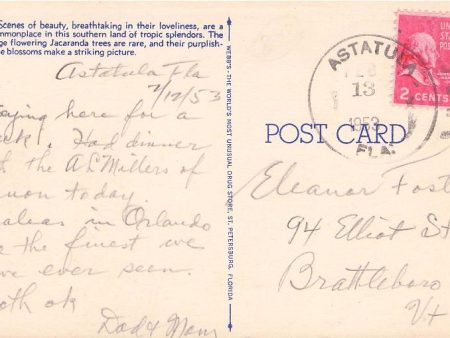 Scenes of beauty, breathtaking in their loveliness, are a
mmonplace in this southern land of tropic splendors. The
ge flowering Jacaranda trees are rare, and their purplish-
e blossoms make a striking picture.
Astatula Fla
2/12/53
aying here for a
eek. Had dinner
th the A L Millers of
non today.
aleas in Orlando
e the finest we
ve ever seen.
oth ok
Dad & Mom
WEBB'S—THE WORLD'S MOST UNUSUAL DRUG STORE, ST. PETERSBURG, FLORIDA
ASTATULA
FEB
13
1953
FLA
UNITED
STATES
POSTAGE
2 CENTS
POST CARD
Eleanor Fost
94 Elliot St
Brattleboro
Vt